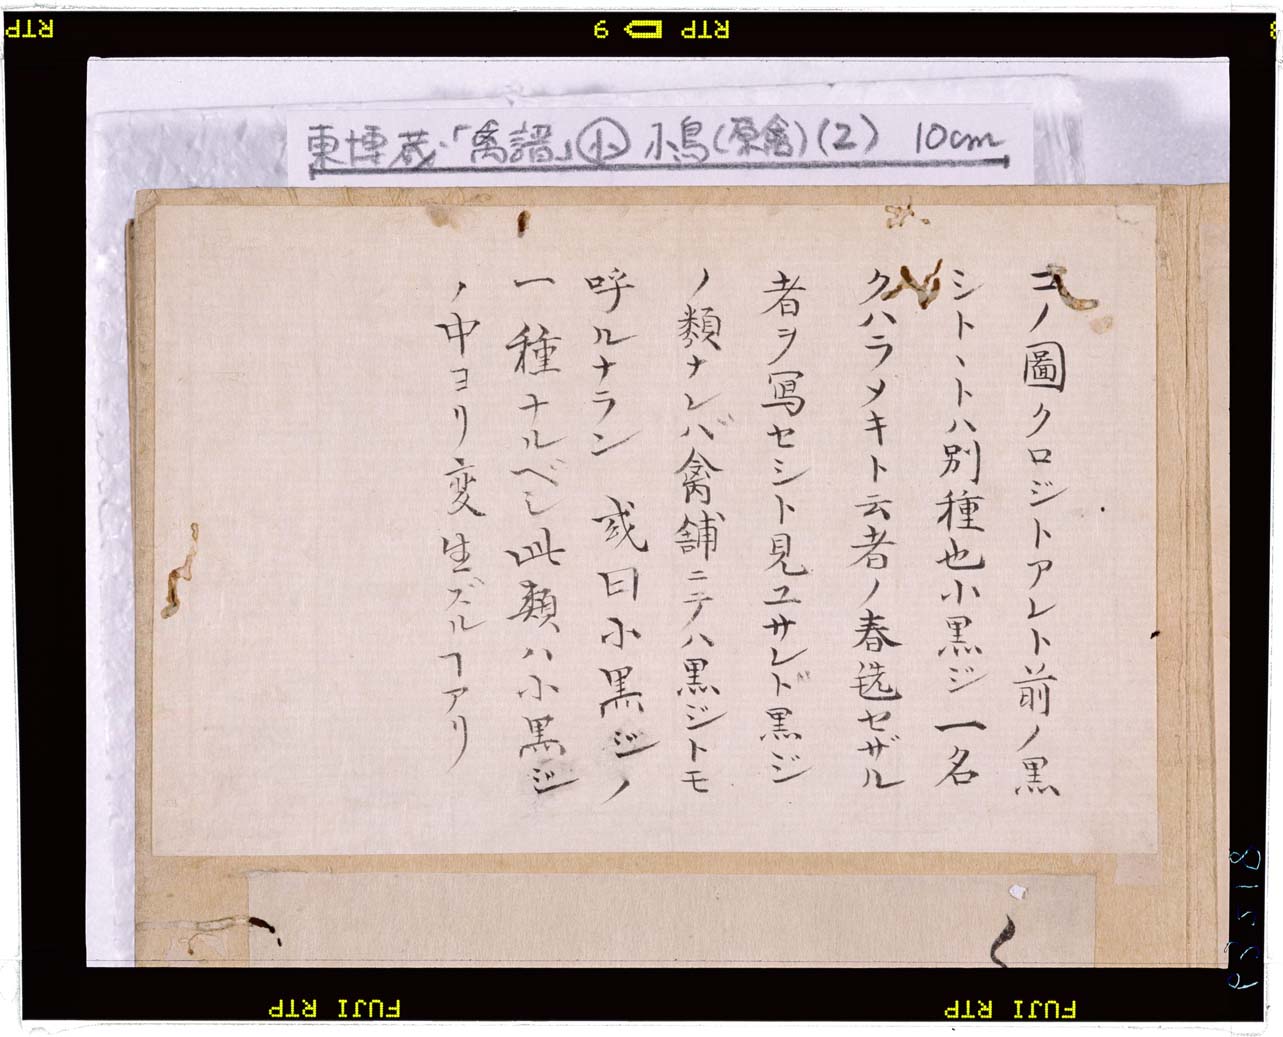 RTP
6
RTP
東博蔵・「禽譜」㊙小鳥(原禽)(2) 10cm
コノ圖クロジトアレト前ノ黒
シトヽトハ別種也小黒ジ一名
クハラメキト云者ノ春毨セザル
者ヲ寫セシト見ユサレド黒ジ
ノ類ナレバ禽舗ニテハ黒ジトモ
呼ルナラン 或曰小黒ジノ
一種ナルベシ此類ハ小黒ジ
ノ中ヨリ変生ズルヿアリ
FUJI RTP
FUJI RTP